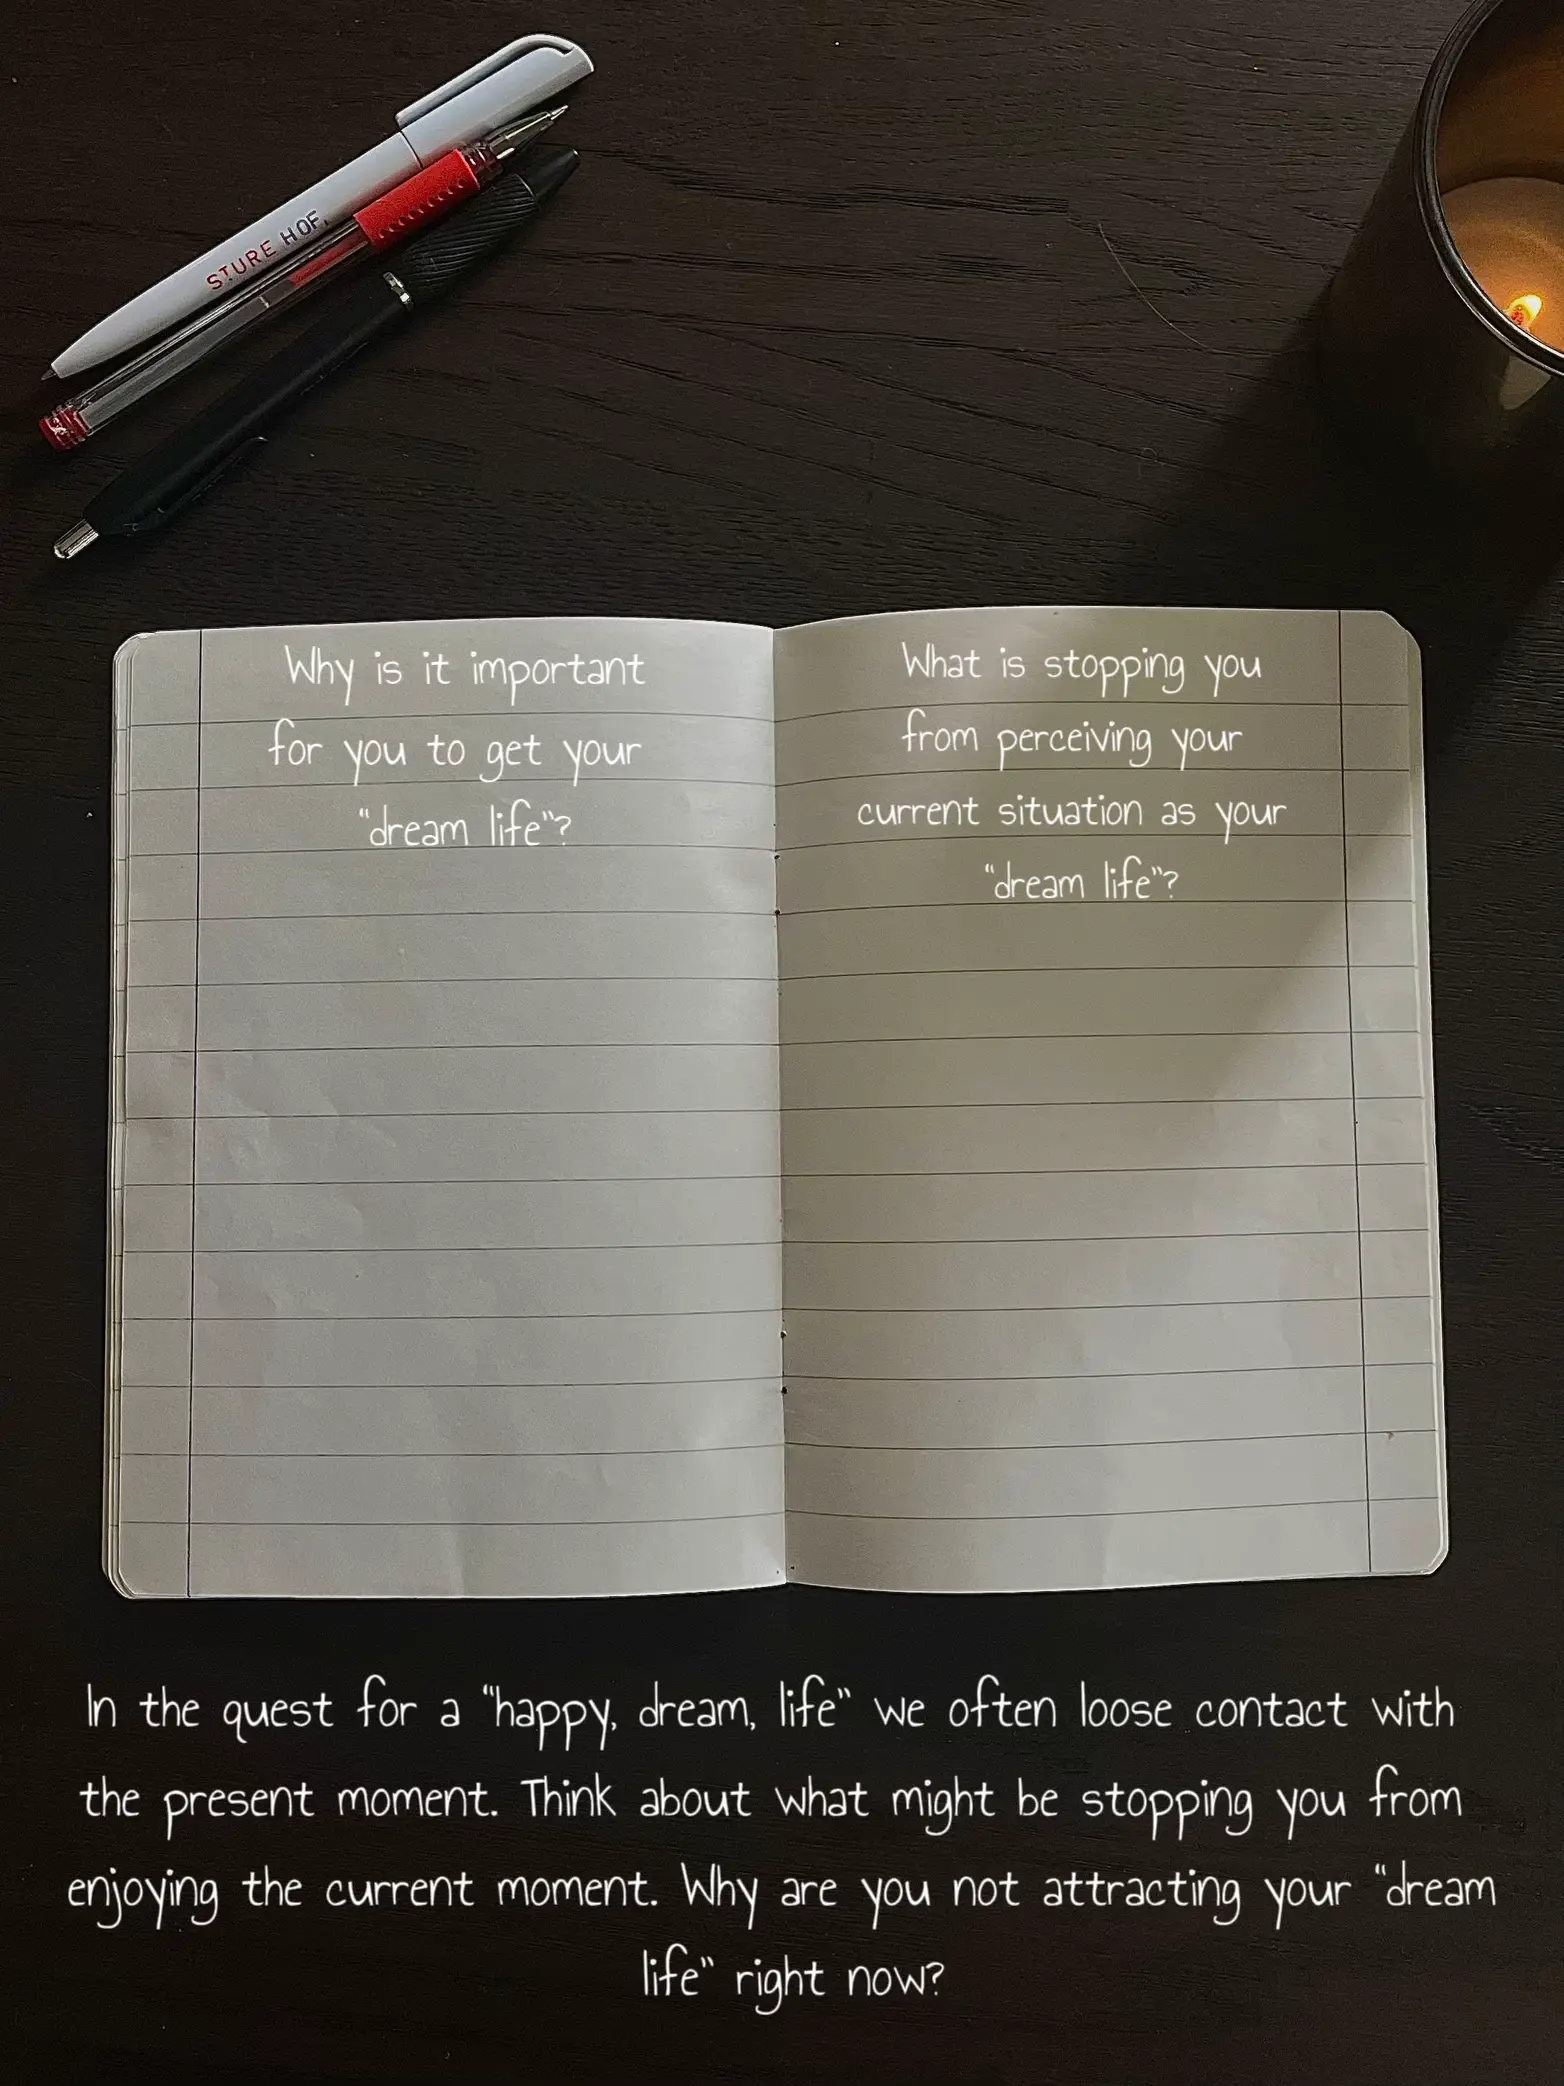 STURE HOF.
Why is it important
for you to get your
"dream life"?
What is stopping you
from perceiving your
current situation as your
"dream life"?
In the quest for a "happy, dream, life" we often loose contact with
the present moment. Think about what might be stopping you from
enjoying the current moment. Why are you not attracting your "dream
life" right now?